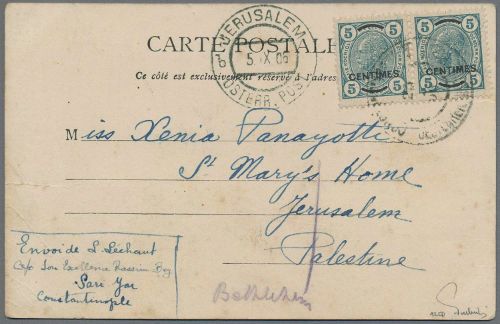 CARTE POSTALE
Ce côté est exclusivement réservé à l'adresse
JERUSALEM
5 IX 06
OESTERR. POST
5 5
CENTIMES
5 5
5 5
CENTIMES
5 5
Miss Xenia Panayotti
St Mary's Home
Jerusalem
Palestine
Bethlehem
Envoi de L. Léchaut
Son Excellence Bey
Sari Yar
Constantinople